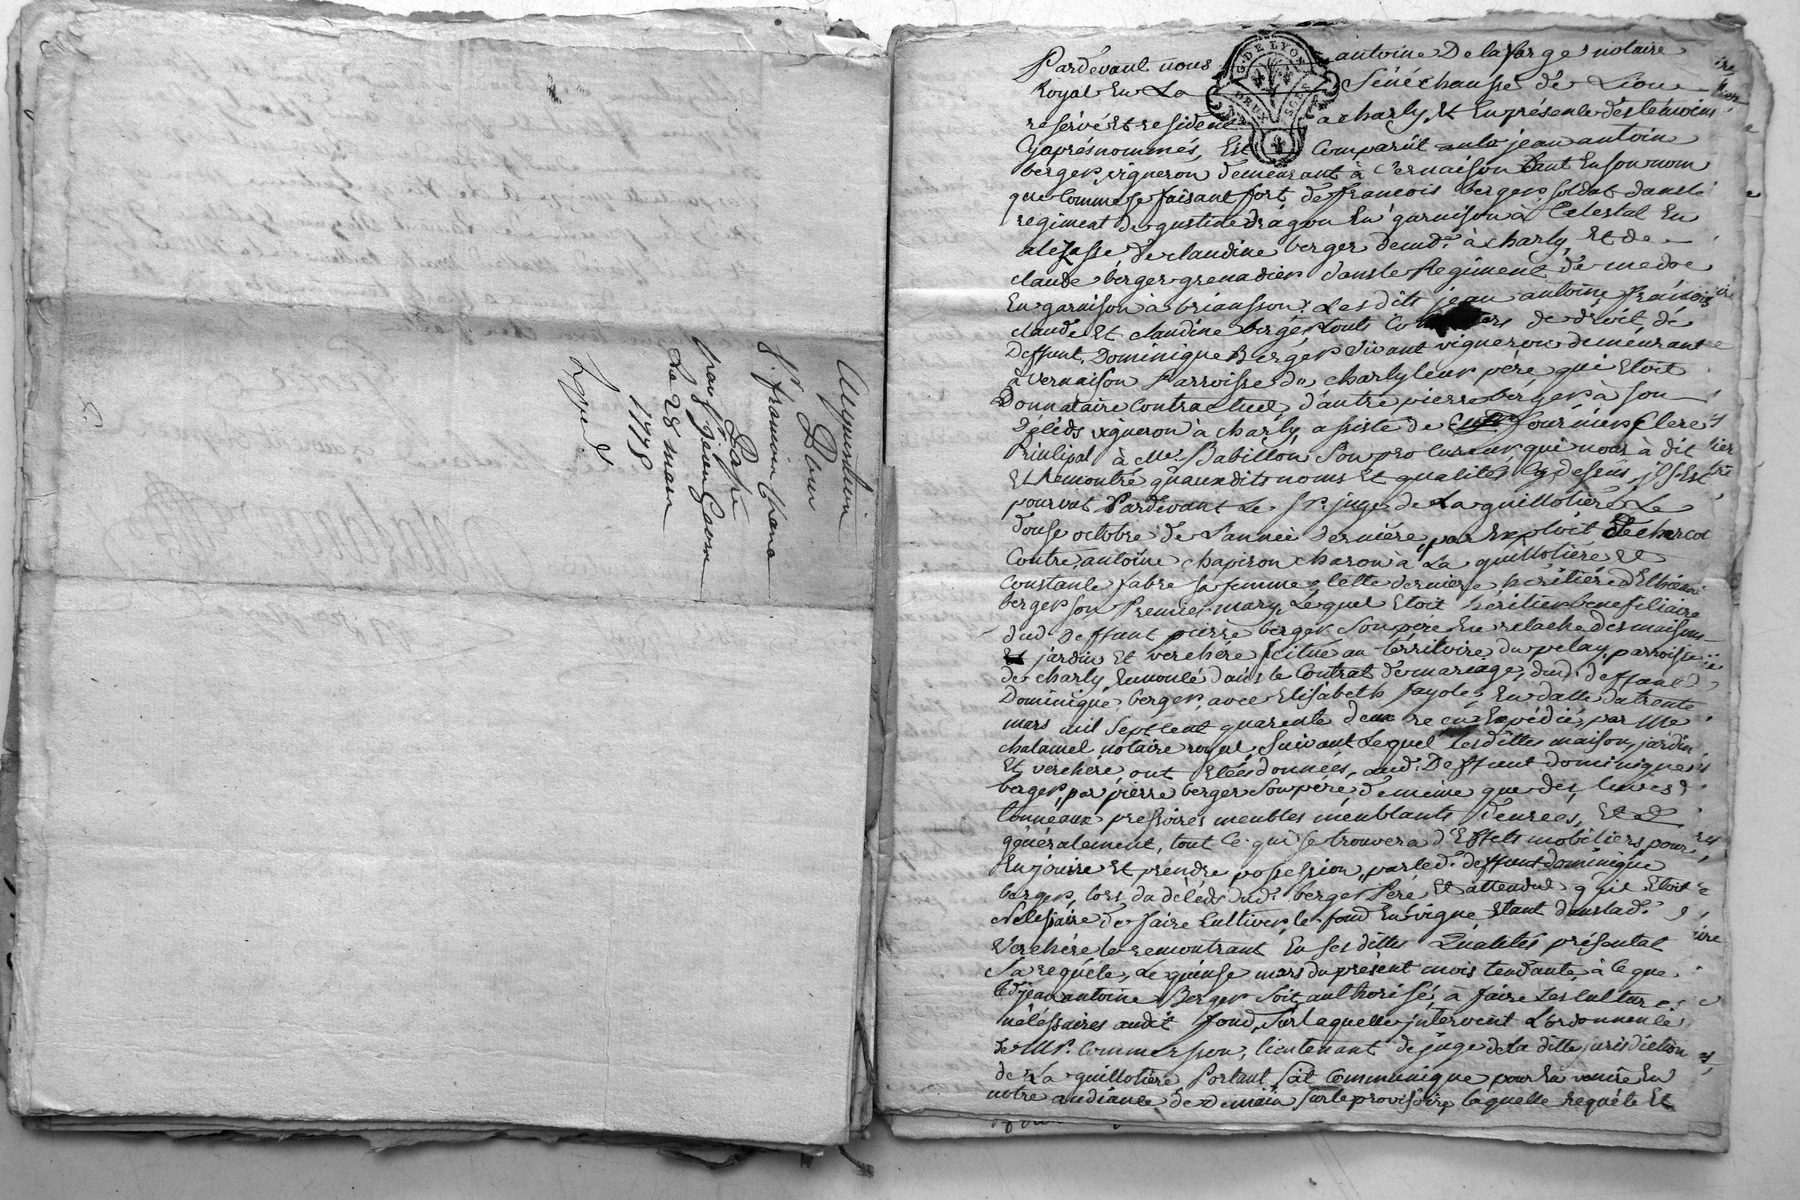 Acquisition
Pour
Sr. francois
Passé
par Sr. jean
Le 28 mars
1778
Expédi
G. DE LYON
DEUX SOLS
Pardevant nous antoine Delaforge notaire
Royal En La Sénéchaussé de Lion
reservé et resident a charly, et En présence des témoins
Cyaprés nommés, Est Comparût jean antoine
berger, vigneron demeurant à vernaison tant En son nom
que Comme se faisant fort de francois berger soldat dans le
regiment de gustine dragon En garnison à Celestat En
alezasse, de claudine berger demdt. à charly, et de
claude berger grenadier dans le Regiment de medoc
En garnison à brianson; Les dits jean antoine francois
claude Et claudine berger touts de droit de
Deffunt Dominique Berger vivant vigneron demeurant
à vernaison Parroisse de charly leur pere qui Etoit
Donnataire Contractuel d'autre pierre berger à son
Déléds vigneron à charly assisté de fournier Clerc
Principal à Me. Babillon son procureur, qui nous à dit
Et Remontré qu'aux dits noms Et qualités Cy dessus jl s'Est
pourvut Pardevant Le Sr. juge de La guillotière Le
douse octobre de L'année Dernière, par Exploit De chercot
Contre antoine chapiron charon à La guillotière et
Constance fabre sa femme, Cette derniere heritière D'Etienne
berger son Premier mary, Lequel Etoit héritier beneficiaire
dud. deffunt pierre berger son pere En relache des maisons
jardin Et verchère scitué au térritoire du pelay, parroisse
de charly Enoncé dans le Contrat de mariage, dud. deffunt
Dominique berger, avec Elisabeth fayole, En datte du trente
mars mil sept cent quarente deux recu Expédié, par Me
chalamel notaire royal, suivant Lequel les dittes maison, jardin
Et verchére, ont Etées données, aud. Deffunt dominique
berger, par pierre berger son pére, de même que des, cuves
tonneaux pressoires meubles meublants denrées, Et
généralement, tout ce qui se trouvera d'Effets mobiliers pour
En jouire Et prendre possession, par led. deffunt dominique
berger, lors du déléds dud. berger Peré Et attendut qu'il Etoit
nécessaire de faire Cultiver, le fond En vigne Etant dans lad.
Verchére le remontrant En ses dittes Qualités présentat
Sa requéte, Le quinse mars du présent mois tendante à ce que
led. jean antoine Berger soit authorisé, à faire Les culture
nécéssaires audit fond, sur laquelle jntervient L'ordonnence
de Mr. Commerson, lieutenant de juge de la ditte jurisdiction
de La guillotière Portant, soit Communique pour En venire En
notre audiance de Demain sur le provisoire, laquelle requéte Et